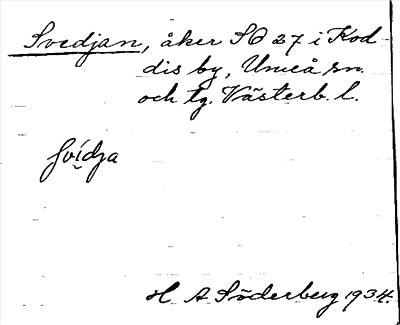 Svedjan, åker SO 27 i Kod
dis by, Umeå sn.
och tg. Västerb. l.
svídja
H A Söderberg 1934.